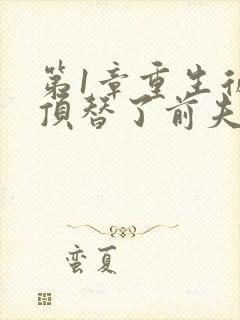 第1章重生
顶替了前夫
蛮夏